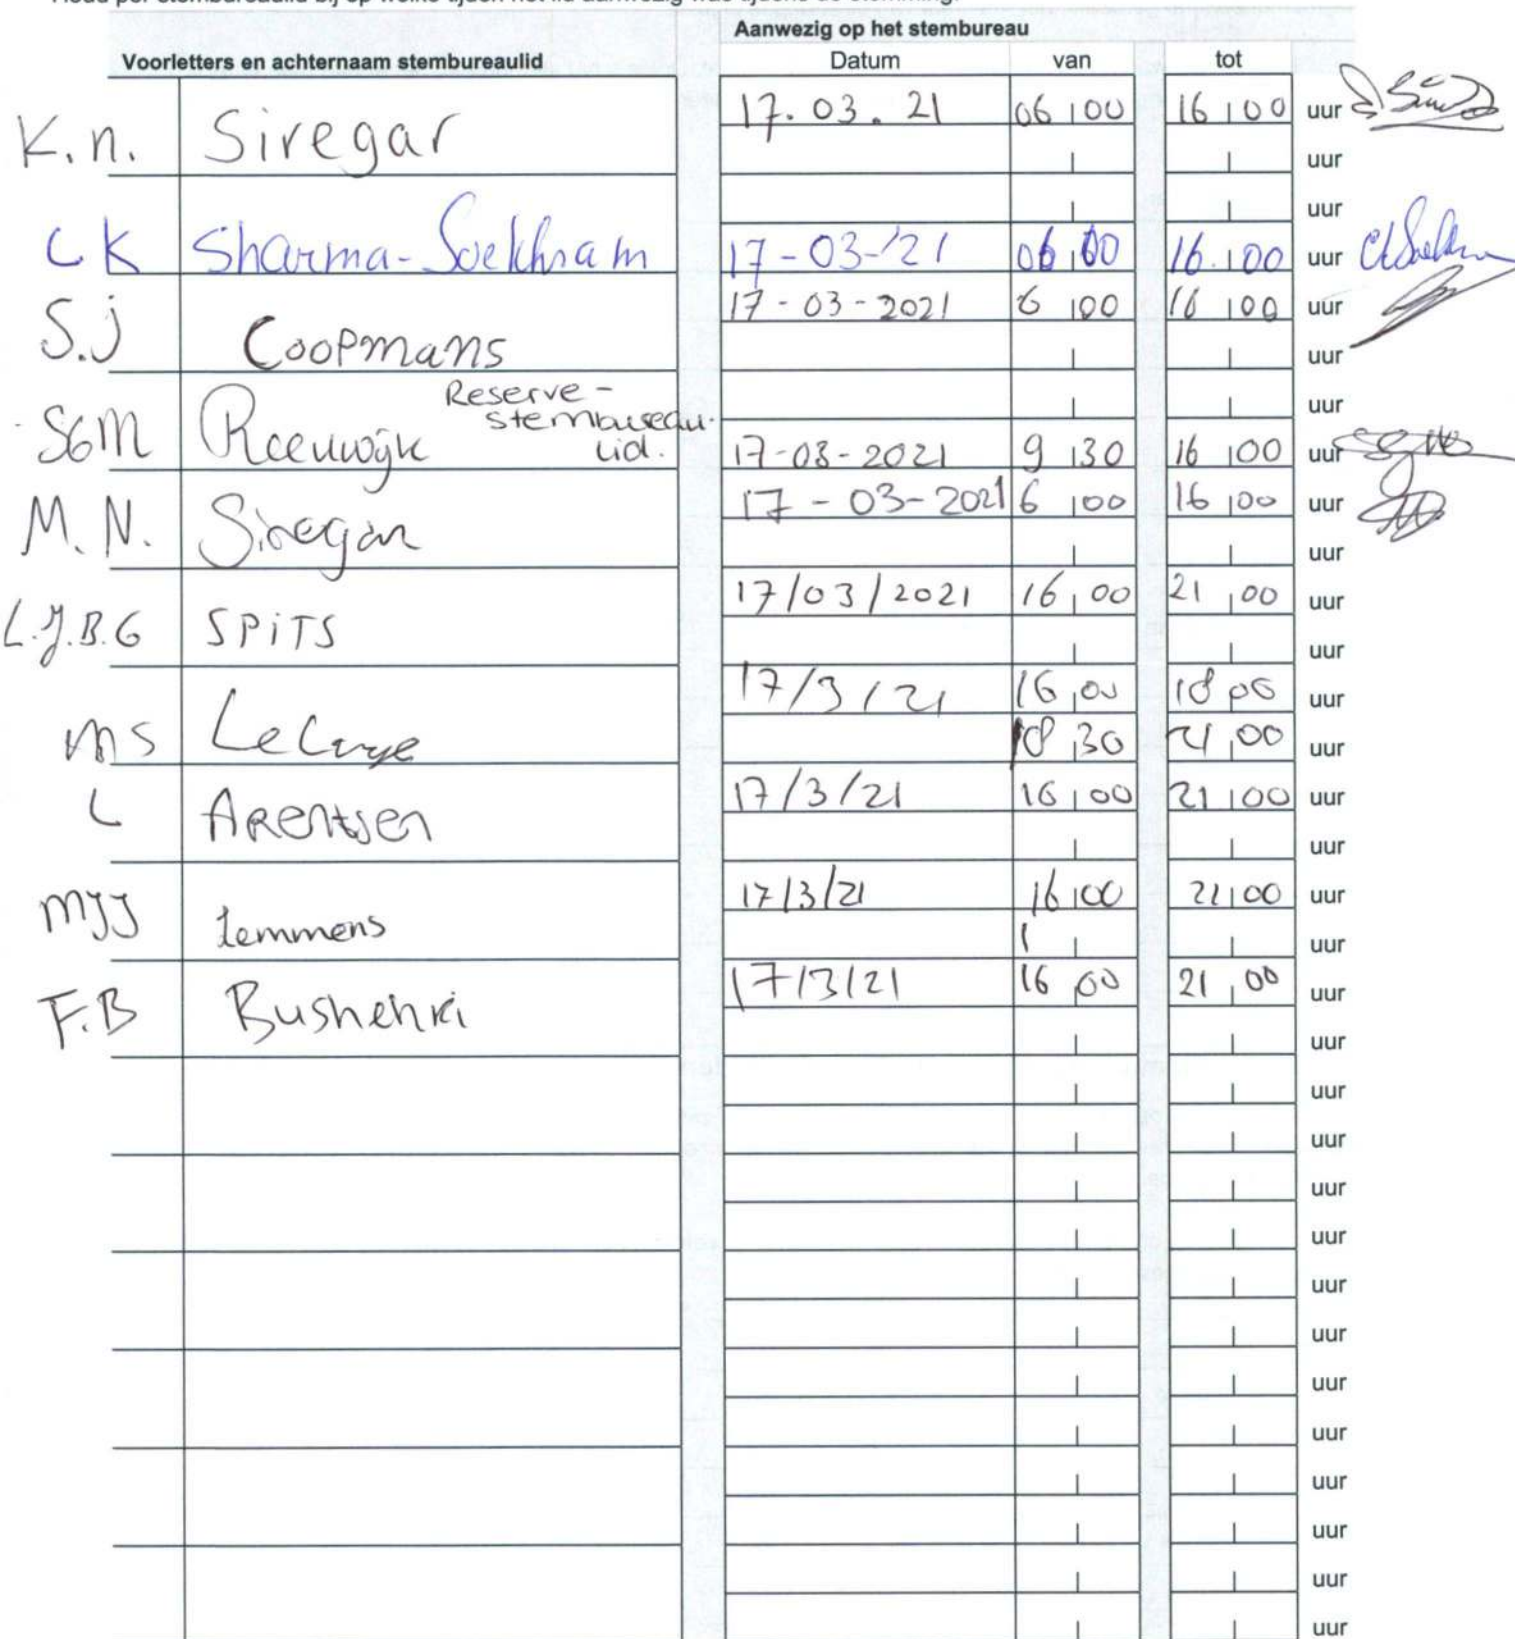 Voorletters en achternaam stembureaulid
Aanwezig op het stembureau
Datum van tot
K.n. Siregar 17.03.21 06 00 16 00 uur
uur
uur
CK Sharma-Soekhram 17-03-'21 06 00 16.00 uur
S.J Coopmans 17-03-2021 6 00 16 00 uur
uur
Reserve- uur
stembureau
SGM Reeuwijk lid. 17-03-2021 9 30 16 00 uur
M.N. Siregar 17-03-2021 6 00 16 00 uur
uur
L.J.B.G SPiTS 17/03/2021 16 00 21 00 uur
uur
MS 17/3/21 16 00 18 00 uur
18 30 21 00 uur
L ARentsen 17/3/21 16 00 21 00 uur
uur
MJJ Lemmens 17/3/21 16 00 21 00 uur
uur
F.B Bushehri 17/3/21 16 00 21 00 uur
uur
uur
uur
uur
uur
uur
uur
uur
uur
uur
uur
uur
uur